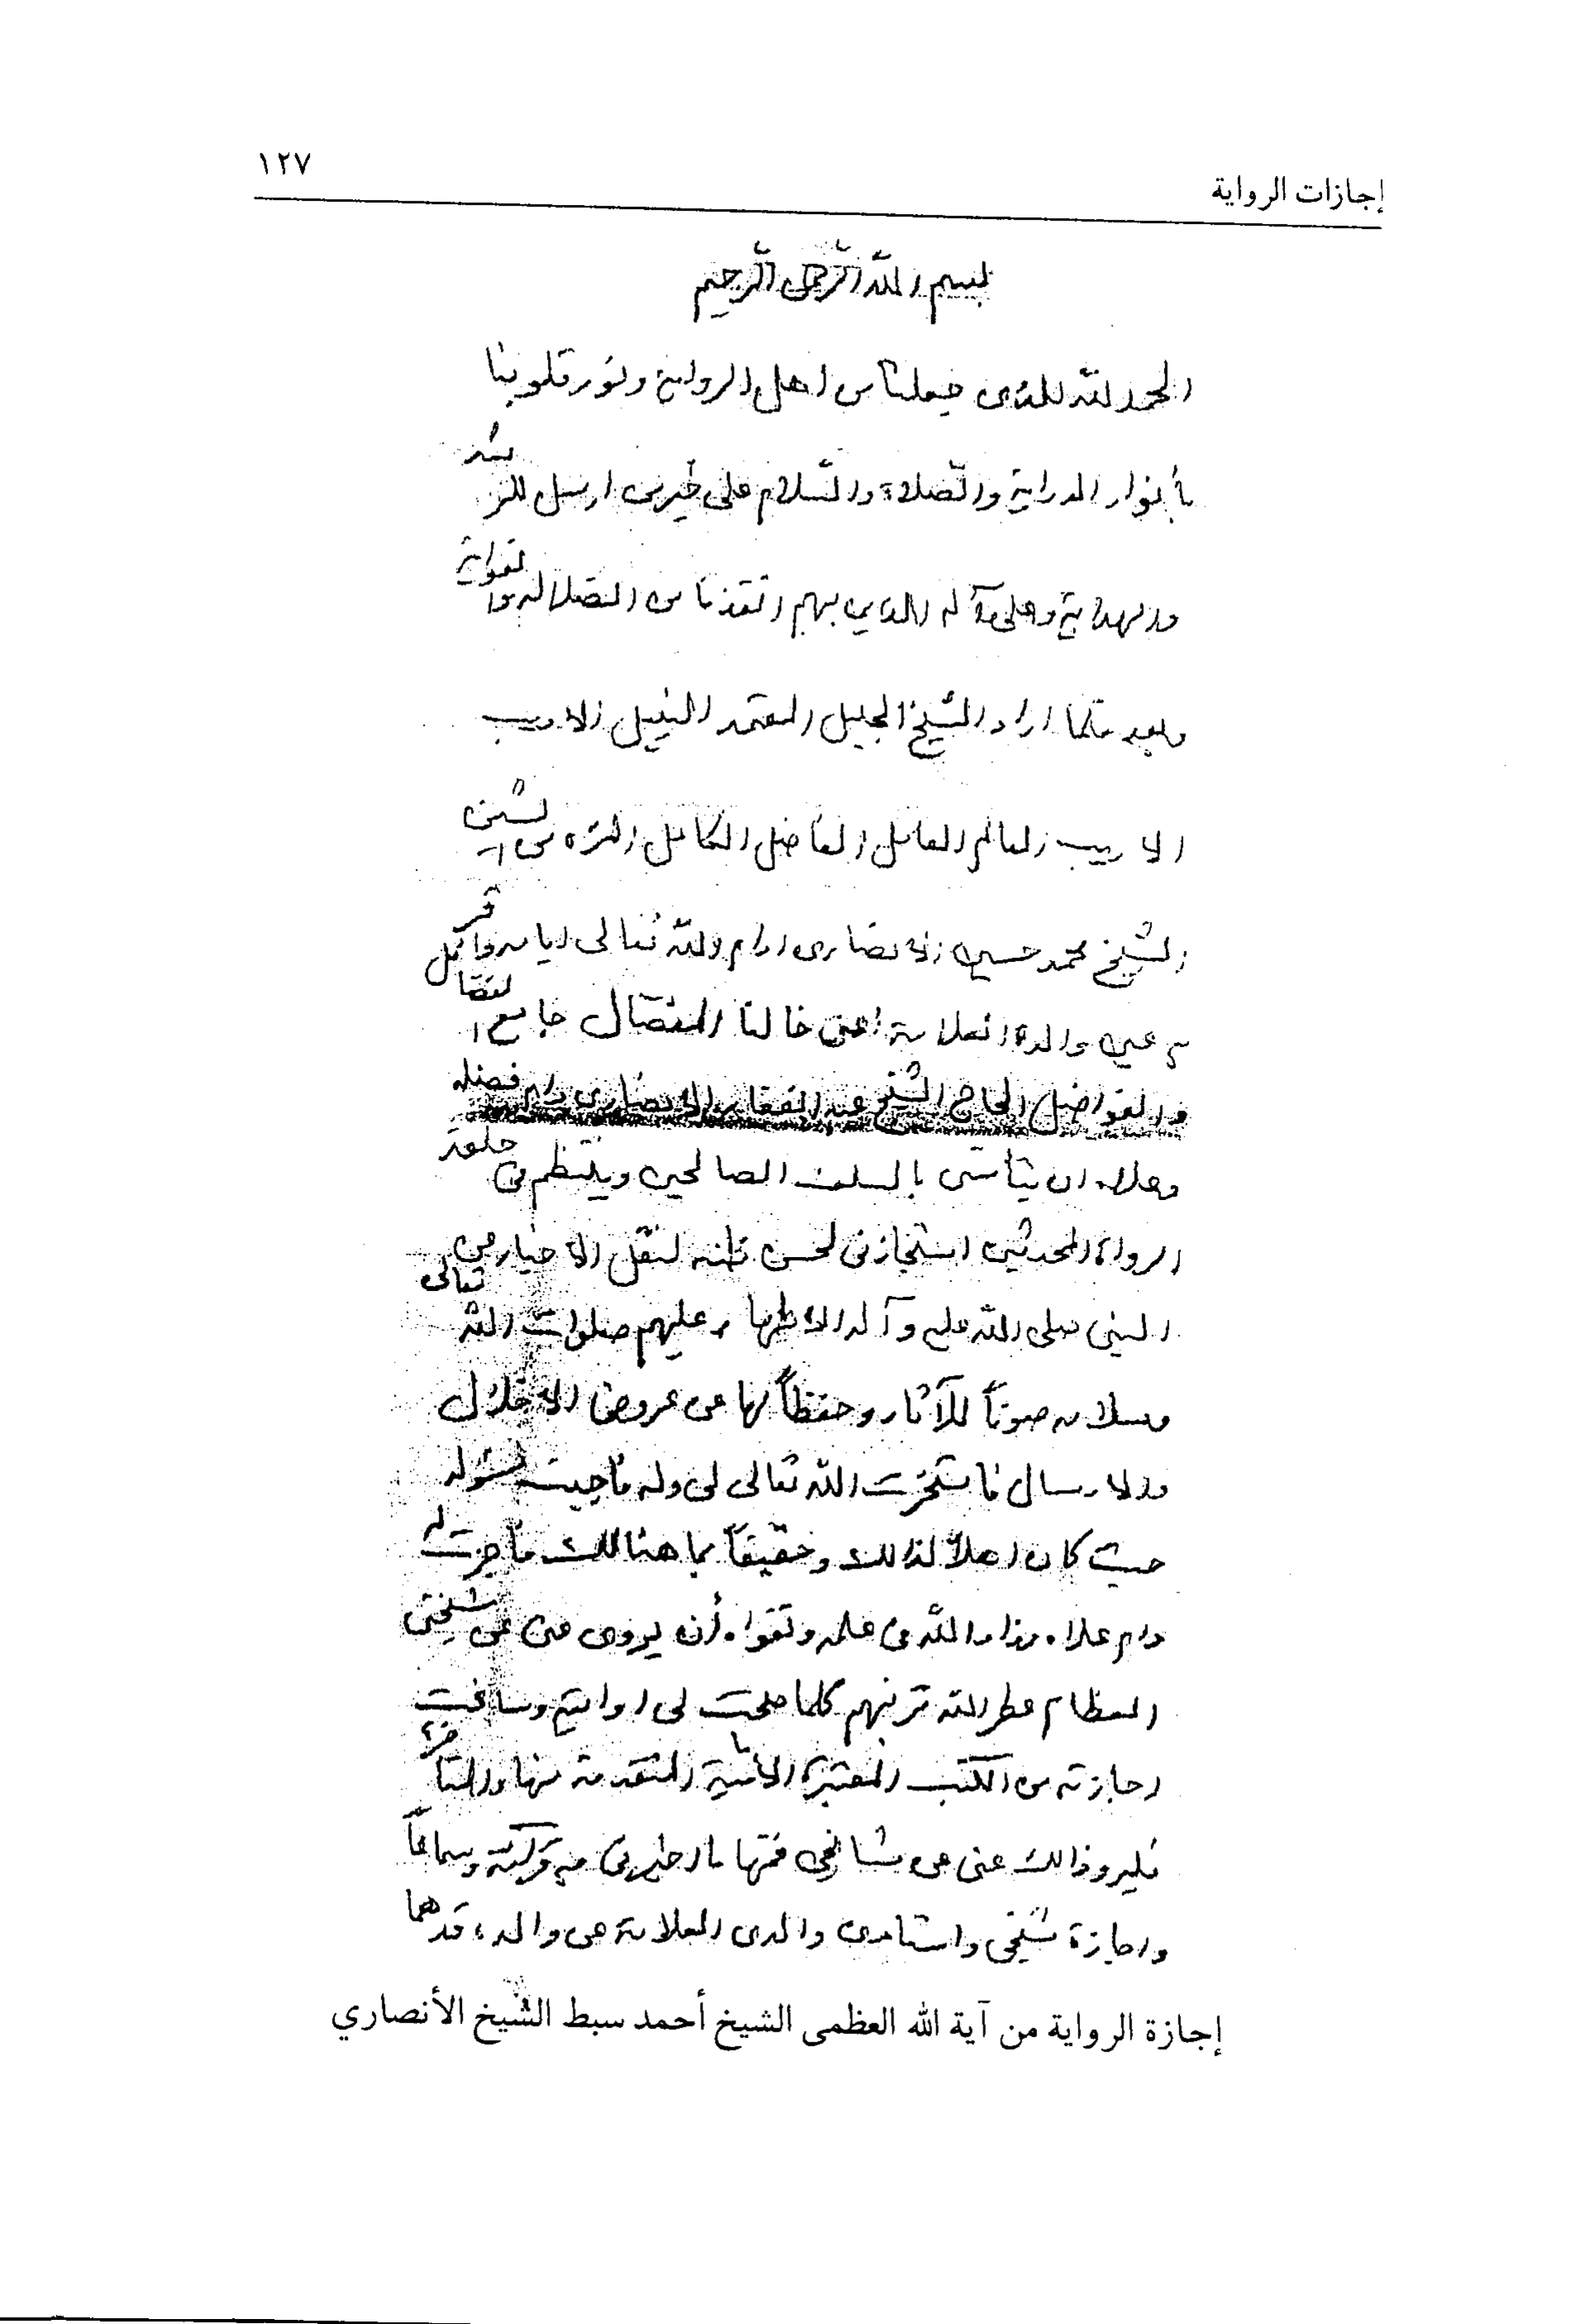 إجازات الرواية
١٢٧
بسم الله الرحمن الرحيم
الحمد لله الذى جعلنا من اهل الرواية ونور قلوبنا
بأنوار الدراية والصلاة والسلام على خير من ارسل للرشد
والهداية وعلى آله الذين بهم انقذنا من الضلالة والغواية
وبعد فلما اراد الشيخ الجليل المعتمد النبيل الاديب
الاريب العالم العامل الفاضل الكامل المنزه من الشين
الشيخ محمد حسين الانصارى ادام الله تعالى ايامه واكمل
عين والده العلامة اعنى خالنا المفضال جامع الفضائل
والفواضل الحاج الشيخ عبد الغفار الانصارى دام فضله
وعلاه ان يتأسى بالسلف الصالحين وينتظم فى حلقة
الرواة المحدثين استجازنى لحسن ظنه لنقل الاخبار من
النبى صلى الله عليه وآله الاطهار عليهم صلوات الله تعالى
وسلامه صوناً للآثار وحفظاً لها عن عروض الاختلال
والارسال فاستخرت الله تعالى لى وله فأجبت لمسئوله
حيث كان اهلاً لذالك وحقيقاً بما هنالك فأجزت له
دام علاه وزاد الله فى علمه وتقواه أن يروى عنى عن مشيختى
العظام عطر الله تربتهم كلما صحت لى روايته وساغت
اجازته من الكتب المعتبرة المتقدمة منها والمتأخرة
وذالك عنى عن مشائخى فمنها ما اخبرنى به قرائة وسماعاً
واجازة شيخى واستادى والدى العلامة عن والده قدهما
إجازة الرواية من آية الله العظمى الشيخ أحمد سبط الشيخ الأنصاري